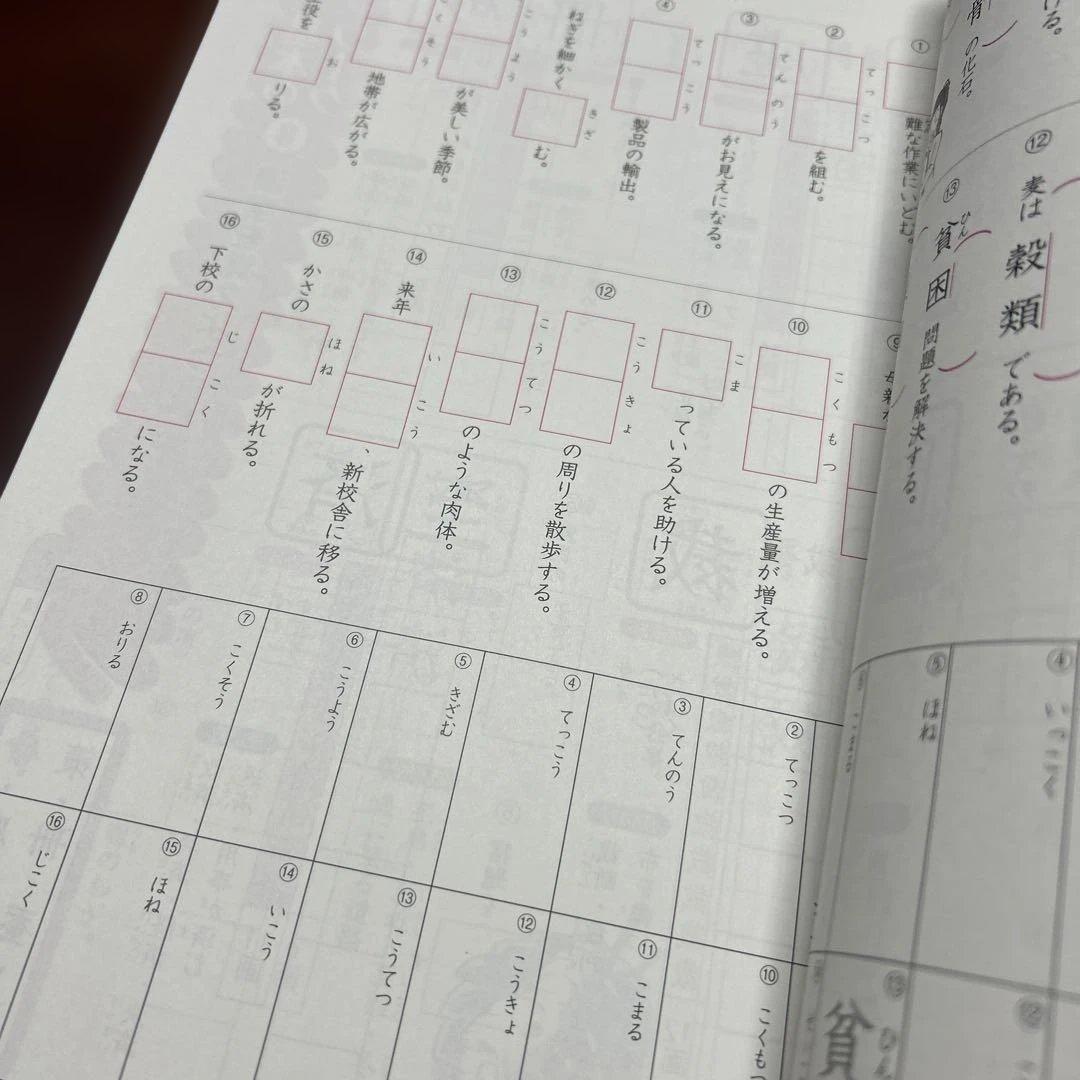 ⑫ 麦は 穀類 である。
⑬ 貧困 問題を解決する。
ひん
の化石。
ける。
①
難な作業にいどむ。
② を組む。
てっこつ
③ がお見えになる。
てんのう
④ 製品の輸出。
てっこう
ねぎを細かく む。
きざ
が美しい季節。
こうよう
地帯が広がる。
こくそう
役を りる。
お
⑨
⑩ の生産量が増える。
こくもつ
⑪ っている人を助ける。
こま
⑫ の周りを散歩する。
こうきょ
⑬ のような肉体。
こうてつ
⑭ 来年 、新校舎に移る。
いこう
⑮ かさの が折れる。
ほね
⑯ 下校の になる。
じこく
② てっこつ
③ てんのう
④ てっこう
⑤ きざむ
⑥ こうよう
⑦ こくそう
⑧ おりる
⑩ こくもつ
⑪ こまる
⑫ こうきょ
⑬ こうてつ
⑭ いこう
⑮ ほね
⑯ じこく
④ いっこく
⑤ ほね
⑬ 貧
ひん